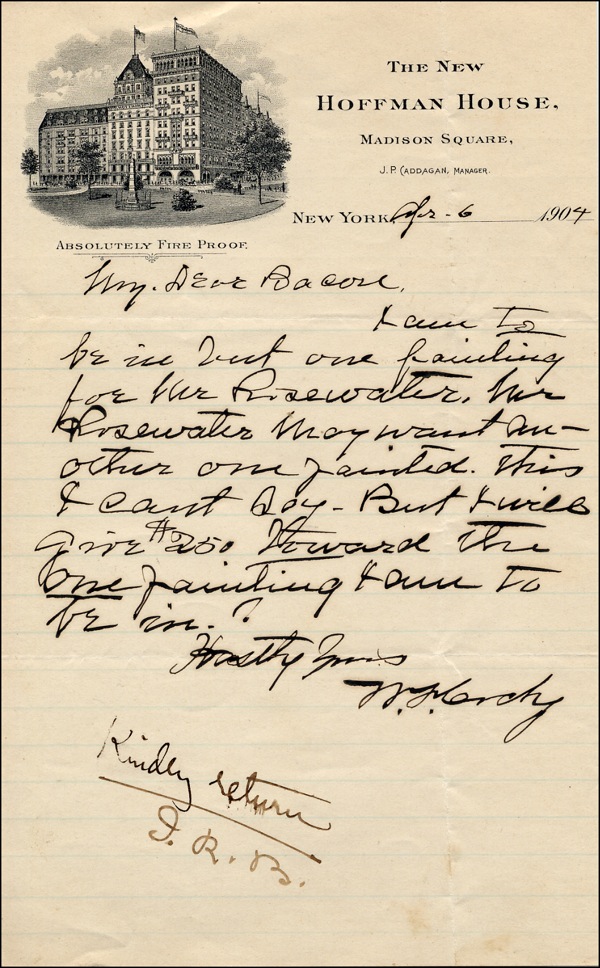 THE NEW
HOFFMAN HOUSE,
MADISON SQUARE,
J. P. CADDAGAN, MANAGER.
NEW YORK, Apr - 6 1904
ABSOLUTELY FIRE PROOF.
My. Dear Bacon,
I am to
be in but one painting
for Mr Rosewater. Mr
Rosewater May want an-
other one painted. this
I cant Say - But I will
give $250 Toward the
one painting I am to
be in.
Hastily Yours
W. F. Cody
Kindly return
I. R. B.